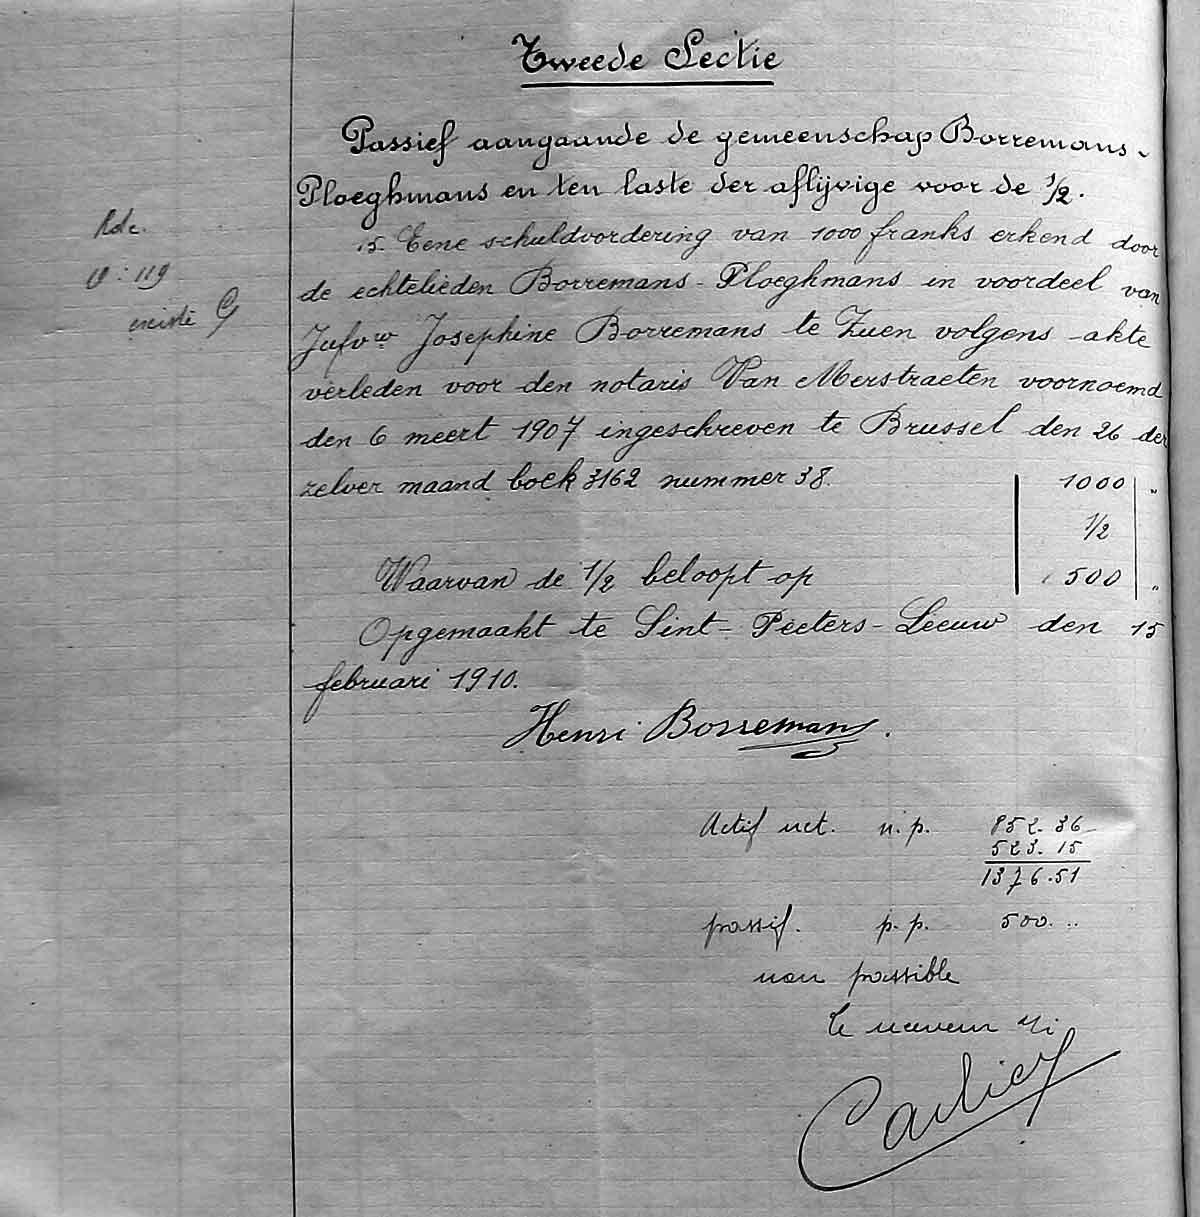 Tweede Sectie
Passief aangaande de gemeenschap Borremans-
Ploeghmans en ten laste der aflijvige voor de 1/2.
15. Eene schuldvordering van 1000 franks erkend door
de echtelieden Borremans-Ploeghmans in voordeel van
Jufvw Josephine Borremans te Zuen volgens akte
verleden voor den notaris Van Merstraeten voornoemd
den 6 meert 1907 ingeschreven te Brussel den 26 der
zelver maand boek 3162 nummer 38. 1000 "
1/2
Waarvan de 1/2 beloopt op 500 "
Opgemaakt te Sint-Peeters-Leeuw den 15
februari 1910.
Henri Borremans.
119
existe
Actif net. n.p. 852.36
523.15
1376.51
passif. p.p. 500...
non passible
Le receveur
Carlier